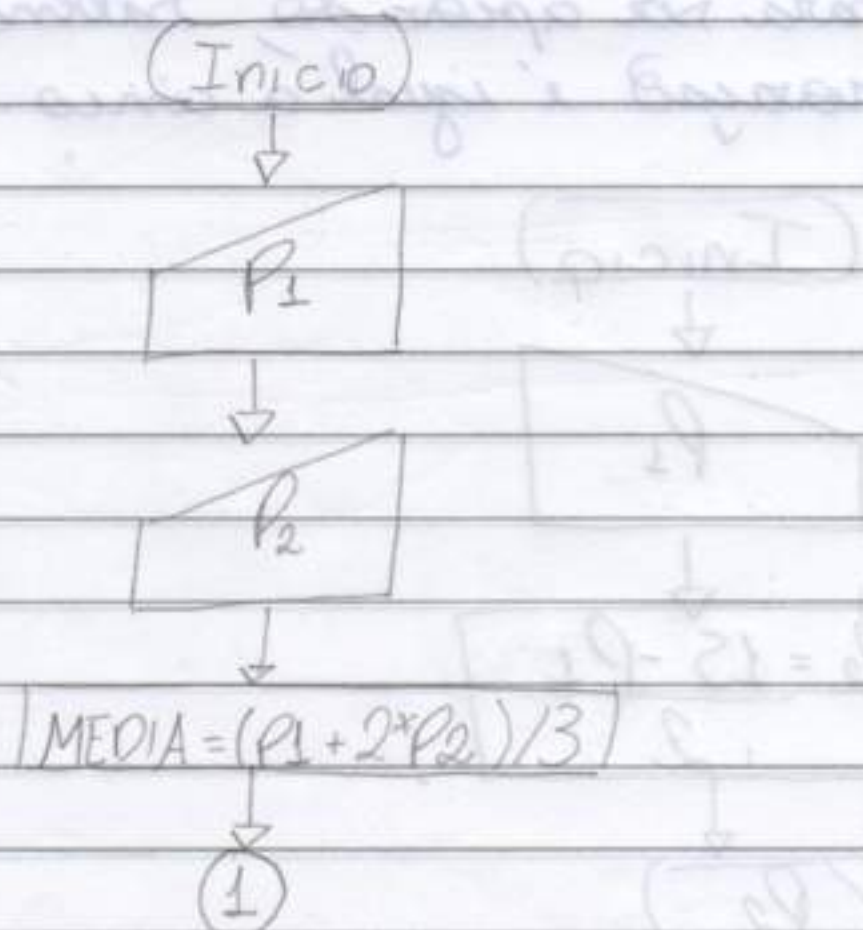 Inicio
P1
P2
MEDIA = (P1 + 2*P2)/3
1